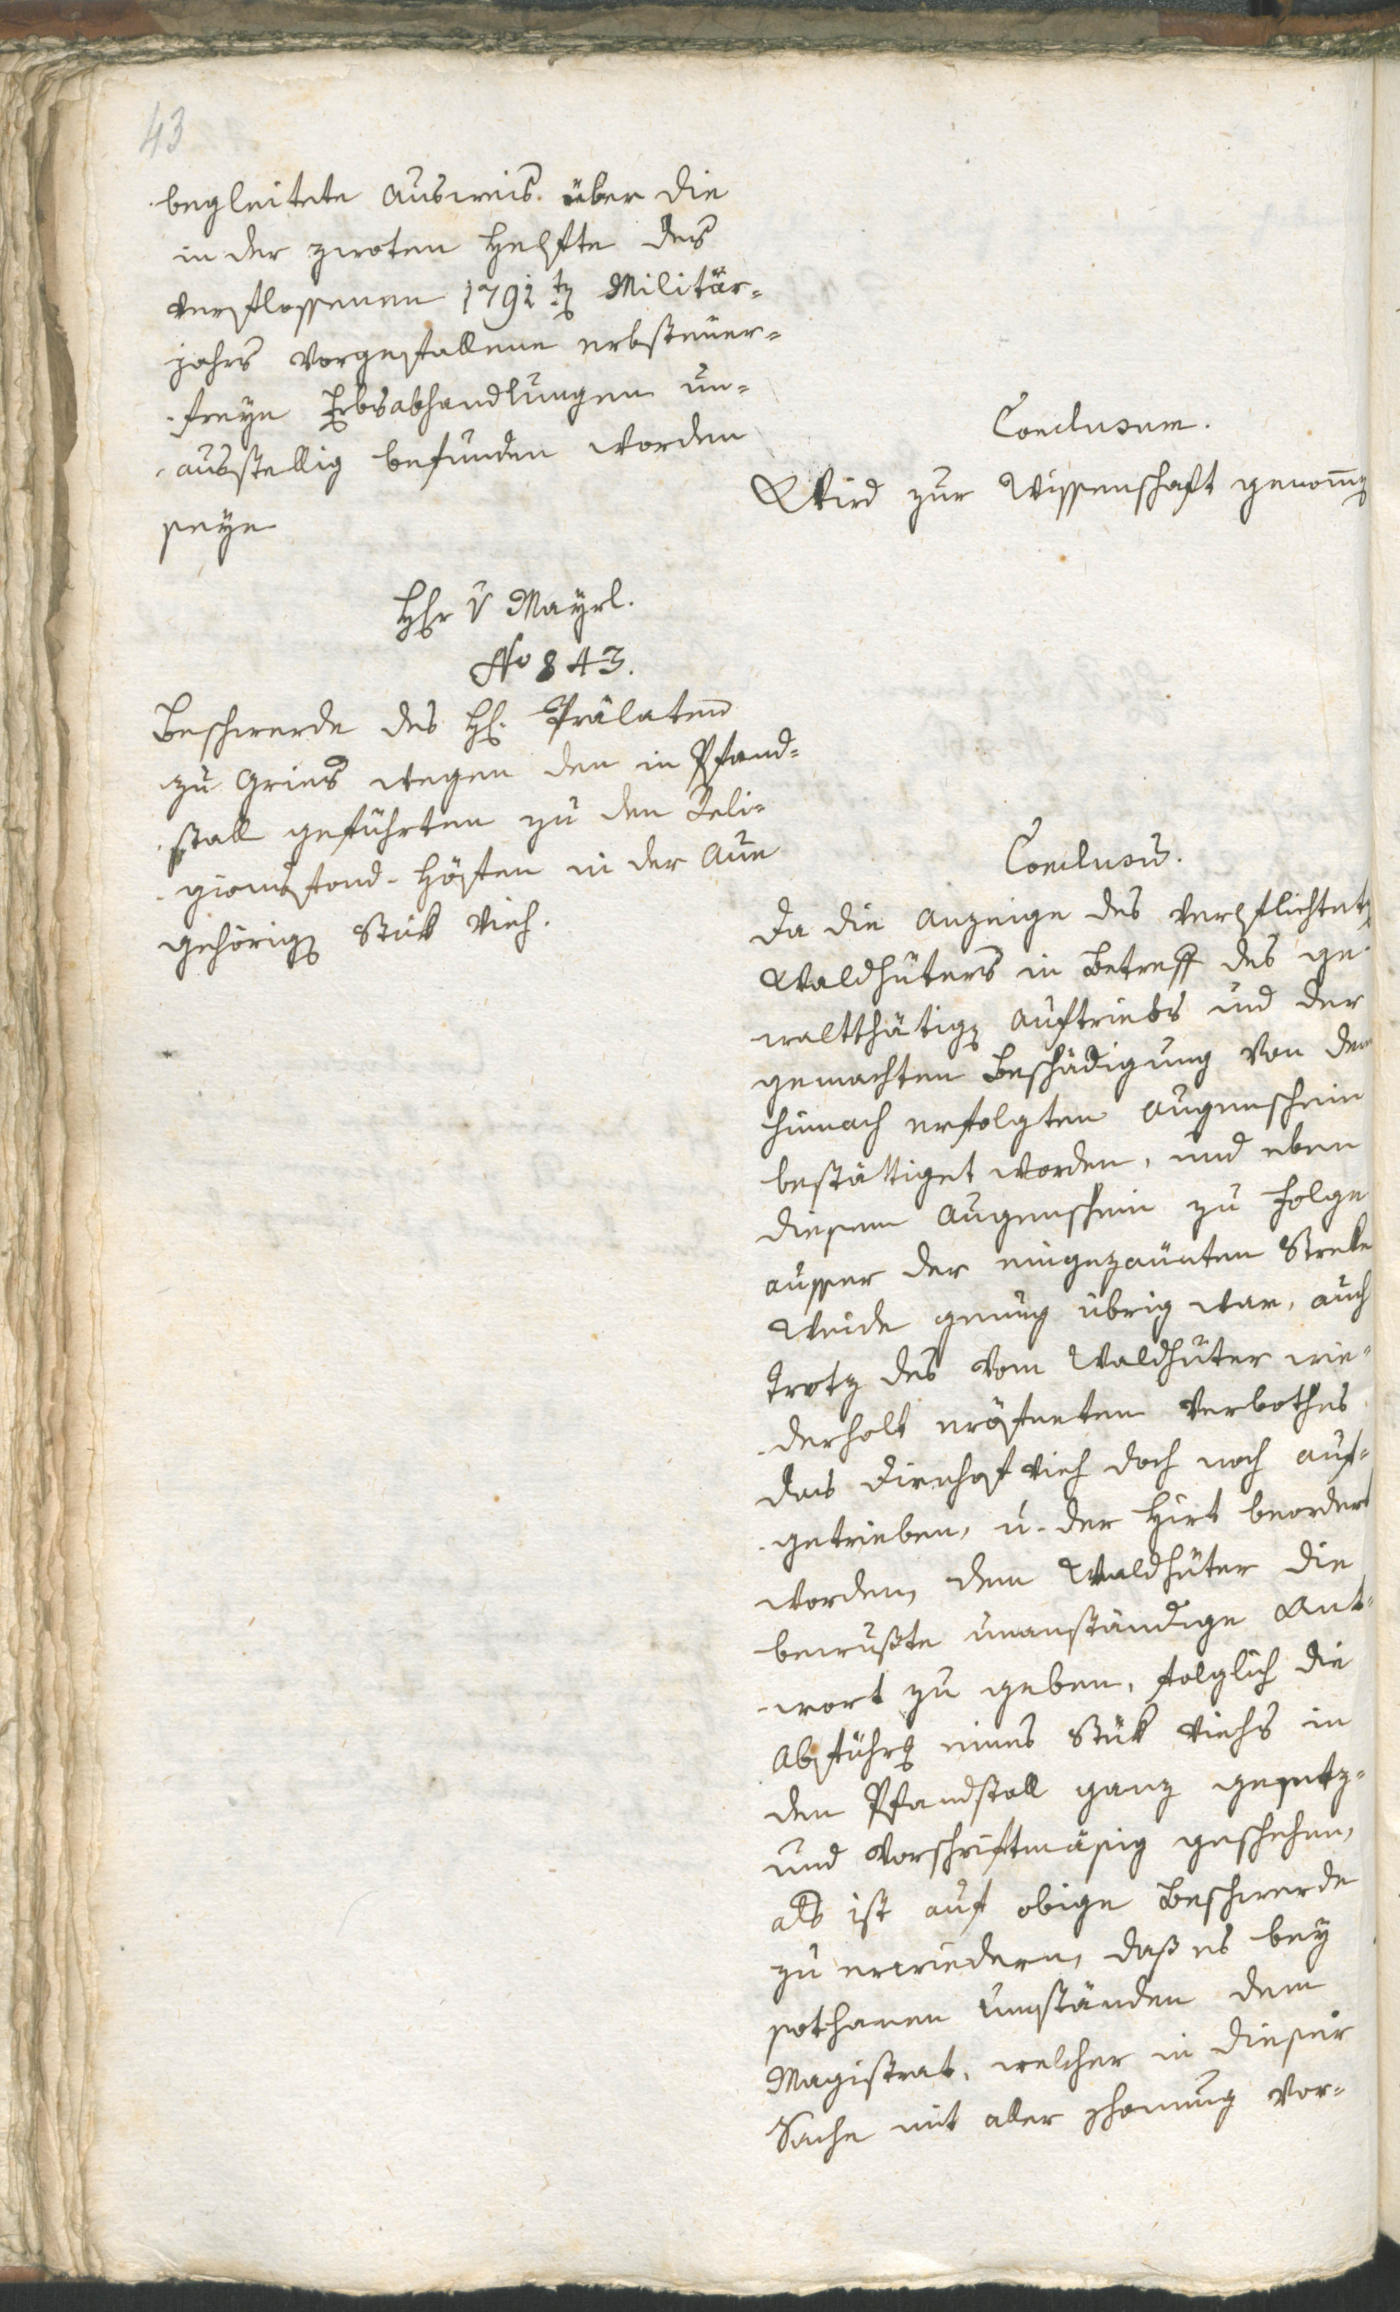 43
begleitete Ausweis über die
in der zwoten Helfte des
verflossenen 1792ten Militär-
jahrs vorgefallene erbsteuer-
freye Erbsabhandlungen un-
ausstellig befunden worden
seye
Conclusum.
Wird zur Wissenschaft genomen
Hhr v Mayrl.
No 843.
Beschwerde des H. Prälaten
zu Gries wegen den in Pfand-
stall geführten zu den Reli-
gionsfond-Höften in der Aue
gehörigen Stük Vieh.
Conclusum.
Da die Anzeige des verpflichteten
Waldhüters in Betreff des ge-
waltthätigen Auftriebs und der
gemachten Beschädigung von dem
hienach erfolgten Augenschein
bestättiget worden, und eben
diesem Augenschein zu Folge
ausser der eingezäunten Streke
Weide genug übrig war, auch
trotz des vom Waldhüter wie-
derholt eröfneten Verbothes
das Vieh doch noch auf-
getrieben, u. der Hirt beordert
worden, dem Waldhüter die
bewußte unanständige Ant-
wort zu geben, folglich die
Abführung eines Stük Viehs in
den Pfandstall ganz gesetz-
und vorschriftmäsig geschehen,
als ist auf obige Beschwerde
zu erwiedern, daß es bey
sothanen Umständen dem
Magistrat, welcher in dieser
Sache mit aller Schonung vor-